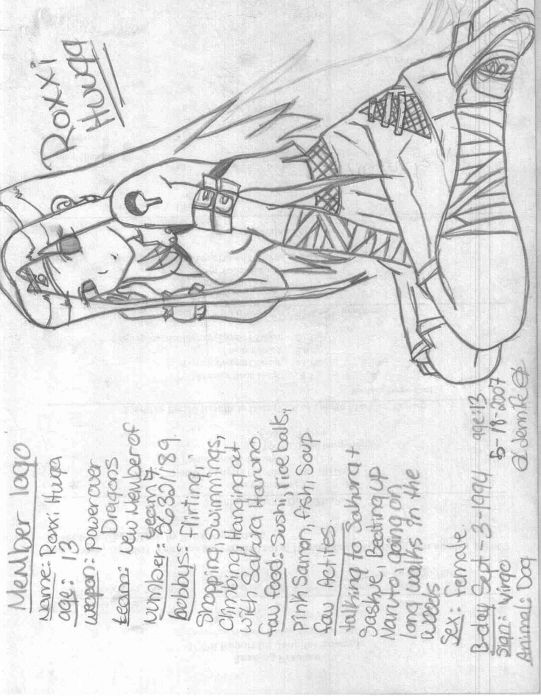 Roxxi
Huuga
Member logo
Name: Roxxi Huga
age: 13
wepon: power over
Dragons
team: new member of
team 7
number: 06321189
hobbys: Flirting,
Shopping, Swimmings,
Climbing, Hanging out
with Sakura Haruno
fav food: Sushi, rice balls,
pink Samon, fish, Soup
fav Actites
talking to Sakura +
Saskye, Beating up
Naruto, going on
long walks in the
woods
Sex: Female
B-day Sept-3-1994 age:13
Sign: Virgo
Animal: Dog
5-18-2007